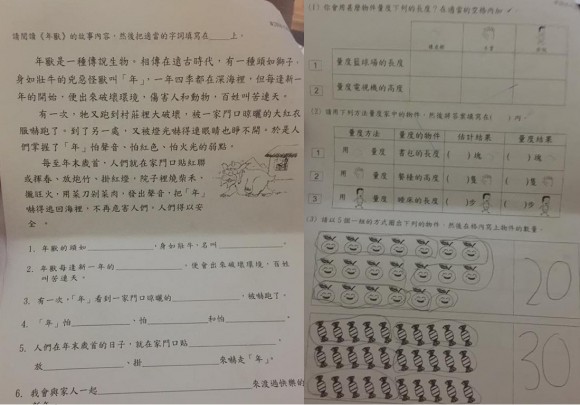 請閱讀《年獸》的故事內容,然後把適當的字詞填寫在____上。
年獸是一種傳說生物。相傳在遠古時代,有一種頭如獅子,
身如壯牛的兇惡怪獸叫「年」,一年四季都在深海裡,但每逢新一
年的開始,便出來破壞環境,傷害人和動物,百姓叫苦連天。
有一次,牠又跑到村莊裡大破壞,被一家門口晾曬的大紅衣
服嚇跑了。到了另一處,又被燈光嚇得連眼睛也睜不開。於是人
們掌握了「年」怕聲音、怕紅色、怕火光的弱點。
每至年末歲首,人們就在家門口貼紅聯
或揮春、放炮竹、掛紅燈,院子裡燒柴禾、
攏旺火,用菜刀剁菜肉,發出聲音,把「年」
嚇得逃回海裡,不再危害人們。人們得以安
全。
1. 年獸的頭如________,身如壯牛,名叫________。
2. 年獸每逢新一年的________,便會出來破壞環境,百姓
叫苦連天。
3. 有一次,「年」看到一家門口晾曬的________,被嚇跑了。
4. 「年」怕________、怕________和怕________。
5. 人們在年末歲首的日子,就在家門口貼________
放________、掛________來嚇走「年」。
6. 我會與家人一起________來渡過快樂的
(1) 你會用甚麼物件量度下列的長度?在適當的空格內加 ✓
1 量度籃球場的長度
2 量度電視機的高度
(2) 請用下列方法量度家中的物件,然後將答案填寫在( )內。
量度方法 量度的物件 估計結果 量度結果
1 用 量度 書包的長度 ( )塊 ( )塊
2 用 量度 餐檯的高度 ( )隻 ( )隻
3 用 量度 睡床的長度 ( )步 ( )步
(3) 請以5個一組的方式圈出下列的物件,然後在格內寫上物件的數量。
20
30